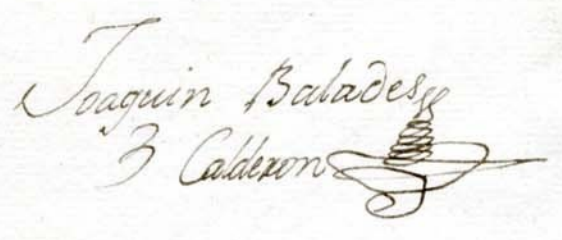 Joaquin Balades
y Calderon